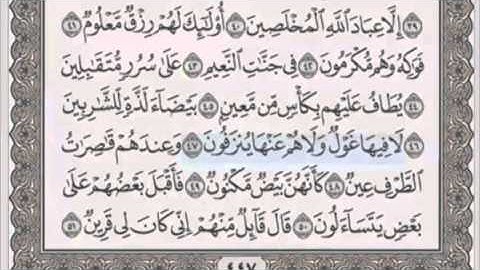 ٣٩ إِلَّا عِبَادَ اللَّهِ الْمُخْلَصِينَ ٤٠ أُولَٰئِكَ لَهُمْ رِزْقٌ مَعْلُومٌ ٤١
فَوَاكِهُ وَهُمْ مُكْرَمُونَ ٤٢ فِي جَنَّاتِ النَّعِيمِ ٤٣ عَلَىٰ سُرُرٍ مُتَقَابِلِينَ
٤٤ يُطَافُ عَلَيْهِمْ بِكَأْسٍ مِنْ مَعِينٍ ٤٥ بَيْضَاءَ لَذَّةٍ لِلشَّارِبِينَ
٤٦ لَا فِيهَا غَوْلٌ وَلَا هُمْ عَنْهَا يُنْزَفُونَ ٤٧ وَعِنْدَهُمْ قَاصِرَاتُ
الطَّرْفِ عِينٌ ٤٨ كَأَنَّهُنَّ بَيْضٌ مَكْنُونٌ ٤٩ فَأَقْبَلَ بَعْضُهُمْ عَلَىٰ
بَعْضٍ يَتَسَاءَلُونَ ٥٠ قَالَ قَائِلٌ مِنْهُمْ إِنِّي كَانَ لِي قَرِينٌ ٥١
٤٤٧